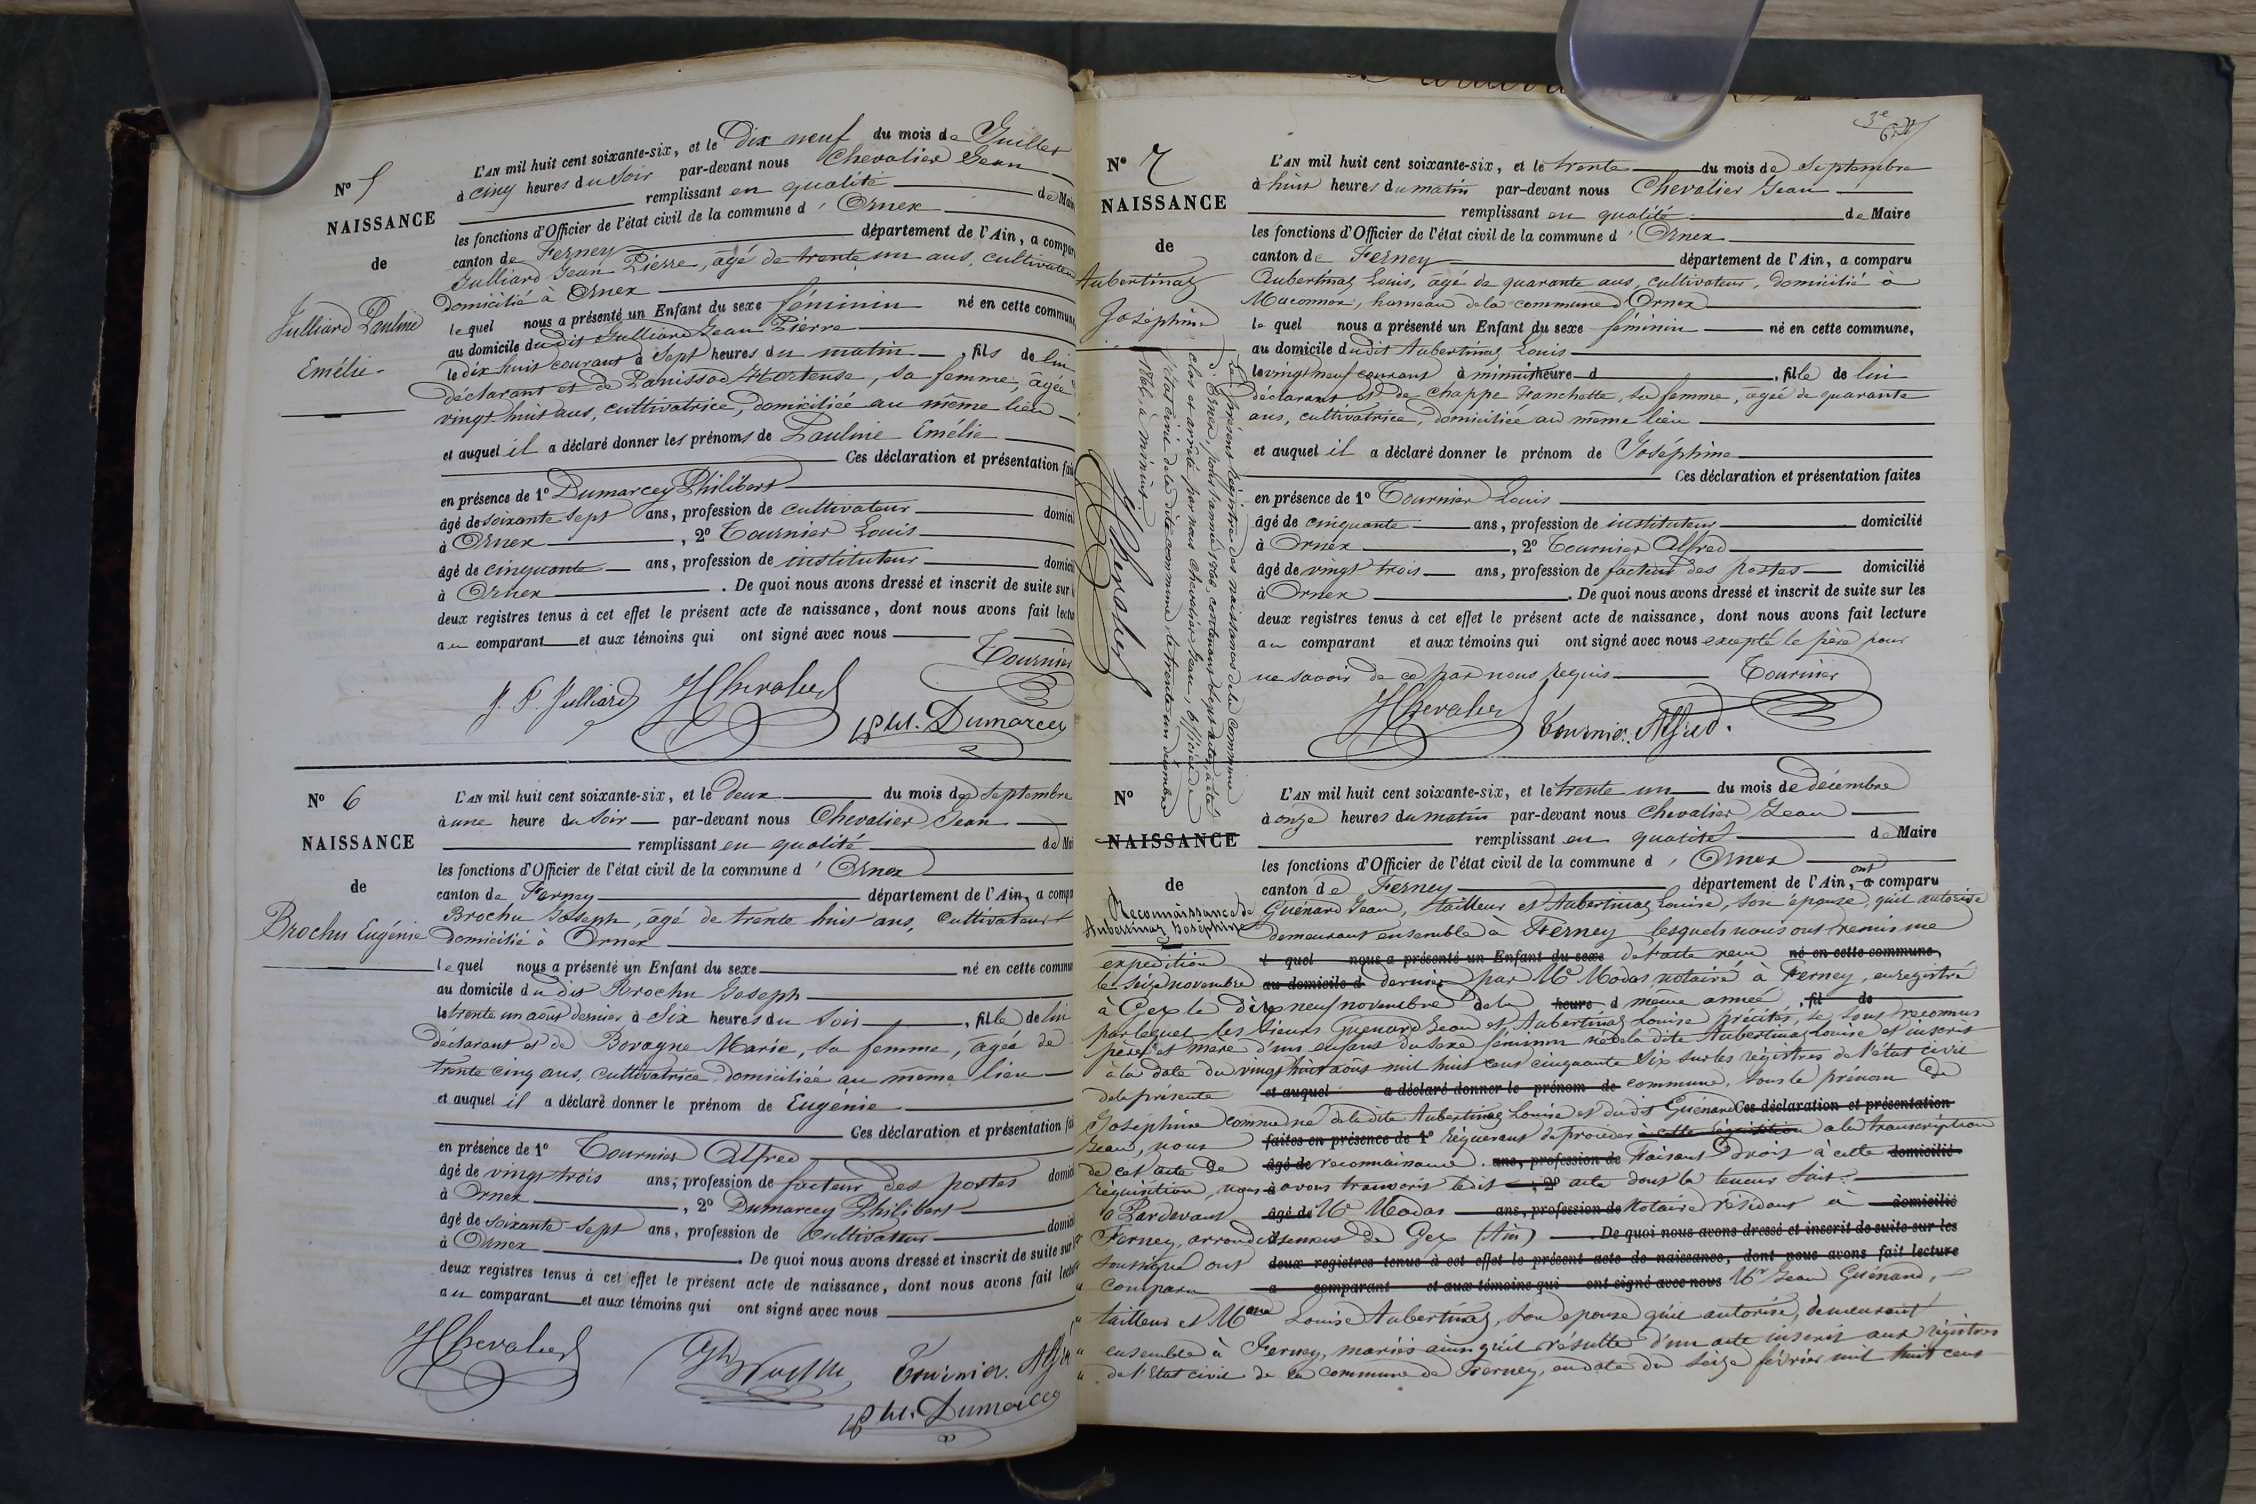 N° 5
NAISSANCE
de
Julliard Pauline
Emélie
L'AN mil huit cent soixante-six, et le Dix neuf du mois de Juillet
à cinq heures du soir par-devant nous Chevalier Jean
remplissant en qualité de Maire
les fonctions d'Officier de l'état civil de la commune d'Ornex
canton de Ferney département de l'Ain, a comparu
Julliard Jean Pierre, âgé de trente un ans, cultivateur
domicilié à Ornex
lequel nous a présenté un Enfant du sexe féminin né en cette commune,
au domicile dudit Julliard Jean Pierre
le dix huit courant à sept heures du matin, fils de lui
déclarant et de Panissod Hortense, sa femme, âgée
vingt huit ans, cultivatrice, domiciliée au même lieu
et auquel il a déclaré donner les prénoms de Pauline Emélie
Ces déclaration et présentation fai
en présence de 1° Dumarcey Philibert
âgé de soixante sept ans, profession de cultivateur domici
à Ornex, 2° Tournier Louis
âgé de cinquante ans, profession de instituteur domici
à Ornex. De quoi nous avons dressé et inscrit de suite sur l
deux registres tenus à cet effet le présent acte de naissance, dont nous avons fait lectu
au comparant et aux témoins qui ont signé avec nous
Tournier
J. P. Julliard JChevalier Phil. Dumarcey
N° 6
NAISSANCE
de
Brochu Eugénie
L'AN mil huit cent soixante-six, et le deux du mois de septembre
à une heure du soir par-devant nous Chevalier Jean
remplissant en qualité de Mai
les fonctions d'Officier de l'état civil de la commune d'Ornex
canton de Ferney département de l'Ain, a compa
Brochu Joseph, âgé de trente huit ans, cultivateur
domicilié à Ornex
lequel nous a présenté un Enfant du sexe né en cette commun
au domicile du dit Brochu Joseph
le trente un août dernier à six heures du soir, fille de lui
déclarant et de Bovagne Marie, sa femme, âgée de
trente cinq ans, cultivatrice domiciliée au même lieu
et auquel il a déclaré donner le prénom de Eugénie
Ces déclaration et présentation fai
en présence de 1° Tournier Alfred
âgé de vingt trois ans, profession de facteur des postes domici
à Ornex, 2° Dumarcey Philibert
âgé de soixante sept ans, profession de cultivateur domici
à Ornex. De quoi nous avons dressé et inscrit de suite sur
deux registres tenus à cet effet le présent acte de naissance, dont nous avons fait lectu
au comparant et aux témoins qui ont signé avec nous
JChevalier Tournier. Alfred
Phil. Dumarcey
3e
N° 7
NAISSANCE
de
Aubertinaz
Joséphine
L'AN mil huit cent soixante-six, et le trente du mois de Septembre
à huit heures du matin par-devant nous Chevalier Jean
remplissant en qualité de Maire
les fonctions d'Officier de l'état civil de la commune d'Ornex
canton de Ferney département de l'Ain, a comparu
Aubertinaz Louis, âgé de quarante ans, cultivateur, domicilié à
Maconnex, hameau de la commune d'Ornex
lequel nous a présenté un Enfant du sexe féminin né en cette commune,
au domicile dudit Aubertinaz Louis
le vingt neuf courant à minuit heure d, fille de lui
déclarant et de Chappe Franchette, sa femme, âgée de quarante
ans, cultivatrice, domiciliée au même lieu
et auquel il a déclaré donner le prénom de Joséphine
Ces déclaration et présentation faites
en présence de 1° Tournier Louis
âgé de cinquante ans, profession de instituteur domicilié
à Ornex, 2° Tournier Alfred
âgé de vingt trois ans, profession de facteur des postes domicilié
à Ornex. De quoi nous avons dressé et inscrit de suite sur les
deux registres tenus à cet effet le présent acte de naissance, dont nous avons fait lecture
au comparant et aux témoins qui ont signé avec nous excepté le père pour
ne savoir de ce par nous requis Tournier
JChevalier Tournier. Alfred.
Le présent Registre des naissances de la commune
d'Ornex, pour l'année 1866, contenant sept actes, a été
clos et arrêté par nous Chevalier Jean, officier de
l'état civil de la dite commune le trente un décembre
1866 à minuit.
JChevalier
N°
NAISSANCE
de
Reconnaissance de
Aubertinaz Joséphine
L'AN mil huit cent soixante-six, et le trente un du mois de décembre
à onze heures du matin par-devant nous Chevalier Jean
remplissant en qualité de Maire
les fonctions d'Officier de l'état civil de la commune d'Ornex
canton de Ferney département de l'Ain, ont a comparu
Guénard Jean, tailleur et Aubertinaz Louise, son épouse, qu'il autorise
demeurant ensemble à Ferney lesquels nous ont remis une
expédition l quel nous a présenté un Enfant du sexe de l'acte reçu né en cette commune,
le seize novembre au domicile d dernier par Me Modas notaire à Ferney, enregistré
à Gex le dix neuf novembre de la heure d même année, fil de
par lequel les sieurs Guénard Jean et Aubertinaz Louise précités, se sont reconnus
père et mère d'un enfant du sexe féminin né de la dite Aubertinaz Louise et inscrit
à la date du vingt huit août mil huit cent cinquante six sur les registres de l'état civil
de la présente et auquel a déclaré donner le prénom de commune, sous le prénom de
Joséphine comme né de la dite Aubertinaz Louise et dudit Guénard Ces déclaration et présentation
Jean, nous faites en présence de 1° requérant de procéder à cette réquisition à la transcription
de cet acte de âgé de reconnaissance. ans, profession de Faisant droit à cette domicilié
réquisition, nous à avons transcrit ledit , 2° acte dont la teneur suit:
"Pardevant âgé de Me Modas ans, profession de Notaire résidant à domicilié
Ferney, arrondissement de Gex (Ain) De quoi nous avons dressé et inscrit de suite sur les
soussigné ont deux registres tenus à cet effet le présent acte de naissance, dont nous avons fait lecture
" comparu a comparant et aux témoins qui ont signé avec nous Mr Jean Guénard,
" tailleur et Mme Louise Aubertinaz, son épouse qu'il autorise, demeurant
" ensemble à Ferney, mariés ainsi qu'il résulte d'un acte inscrit aux régistres
" de l'Etat civil de la commune de Ferney, en date du seize février mil huit cent